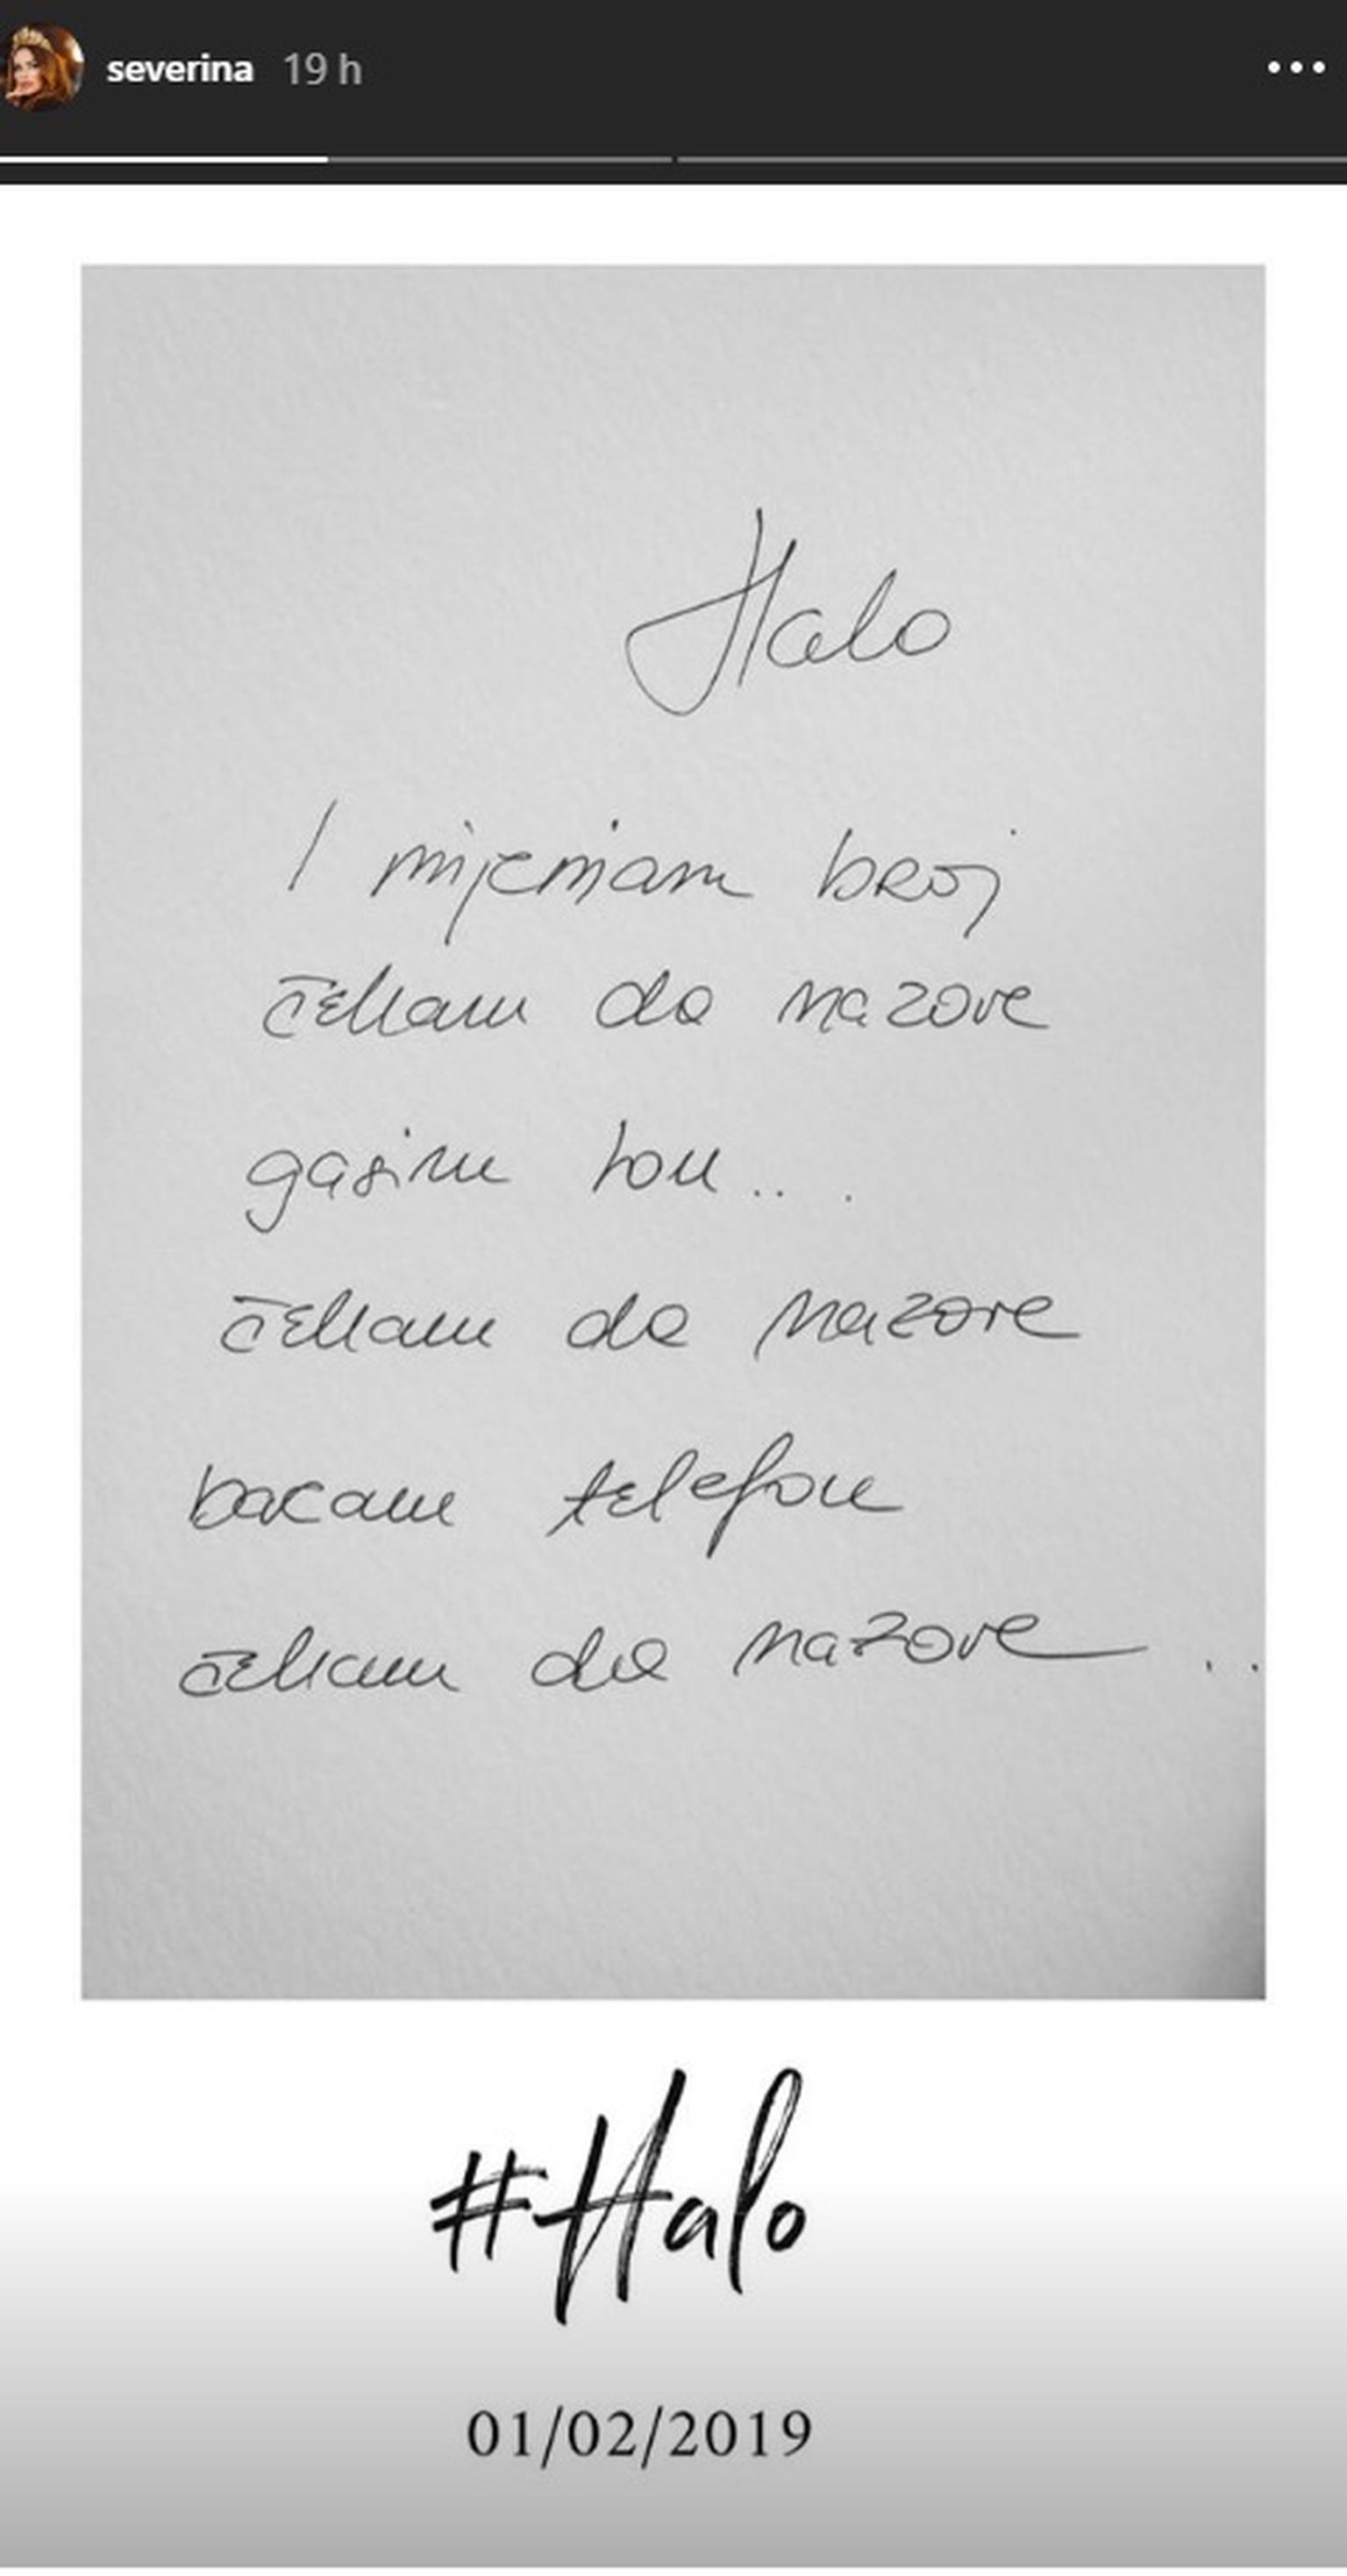 severina 19 h
Halo
I mijenjam broj
čekam da nazove
gasim ton.. .
čekam da nazove
bacam telefon
čekam da nazove ..
#Halo
01/02/2019